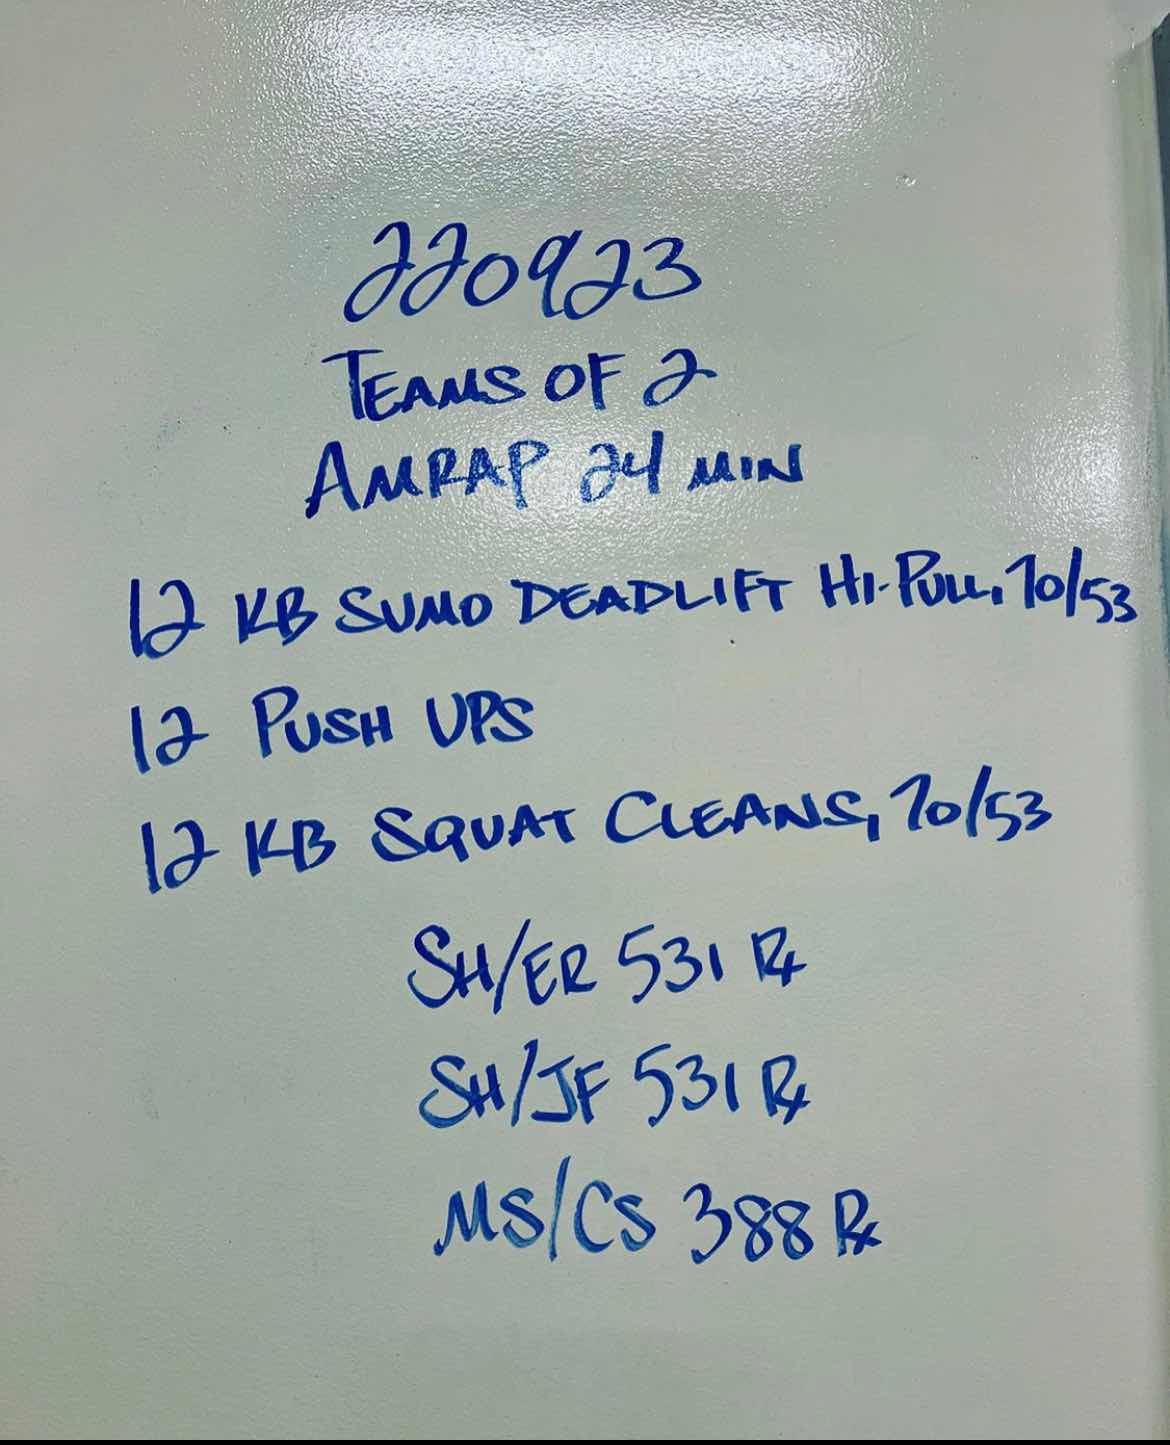 220923
TEAMS OF 2
AMRAP 24 MIN
12 KB SUMO DEADLIFT HI-PULL, 70/53
12 PUSH UPS
12 KB SQUAT CLEANS, 70/53
SH/ER 531 Rx
SH/JF 531 Rx
MS/CS 388 Rx